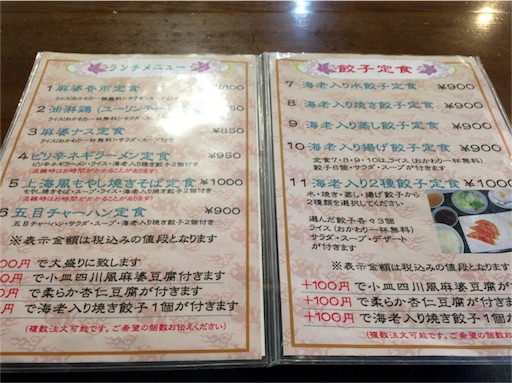 ランチメニュー
1 麻婆春雨定食
ライス(おかわり一杯無料)・サラダ・スープ
2 油淋鶏(ユーリンチー)
ライス(おかわり一杯無料)・サラダ・スープ
3 麻婆ナス定食 ¥850
ライス(おかわり一杯無料)・サラダ・スープ
4 ピリ辛ネギラーメン定食 ¥950
ピリ辛ネギラーメン・ライス・海老入り焼き餃子2個付き
(混雑時はお時間がかかることがあります)
5 上海風もやし焼きそば定食 ¥1000
もやし焼きそば・スープ・ライス・海老入り焼き餃子2個付き
(混雑時はお時間がかかることがあります)
6 五目チャーハン定食 ¥900
五目チャーハン・サラダ・スープ・海老入り焼き餃子2個付き
※表示金額は税込みの値段となります
00円で大盛りに致します
00円で小皿四川風麻婆豆腐が付きます
0円で柔らか杏仁豆腐が付きます
0円で海老入り焼き餃子1個が付きます
(複数注文可能です。ご希望の個数お伝えください)
餃子定食
7 海老入り水餃子定食 ¥900
8 海老入り焼き餃子定食 ¥900
9 海老入り蒸し餃子定食 ¥900
10 海老入り揚げ餃子定食 ¥900
定食7・8・9・10は、ライス(おかわり一杯無料)
餃子6個・サラダ・スープが付きます
11 海老入り2種餃子定食 ¥1000
水・焼き・蒸し・揚げ餃子の中から
2種類を選択してください
選んだ餃子各々3個
ライス(おかわり一杯無料)
サラダ・スープ・デザート
が付きます
※表示金額は税込みの値段となります
+100円で小皿四川風麻婆豆腐が付きます
+100円で柔らか杏仁豆腐が付きます
+100円で海老入り焼き餃子1個が付きます
(複数注文可能です。ご希望の個数お伝えください)